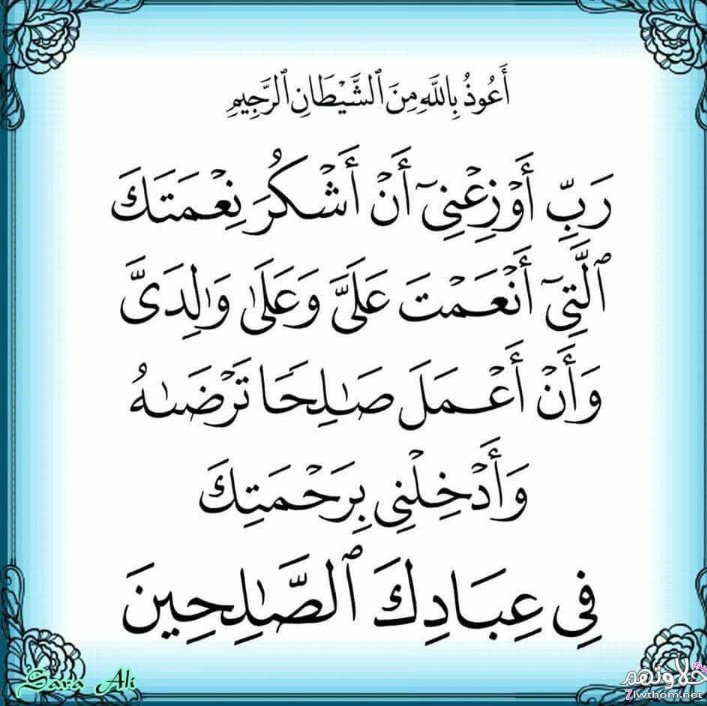 أَعُوذُ بِاللَّهِ مِنَ ٱلشَّيْطَانِ ٱلرَّجِيمِ
رَبِّ أَوْزِعْنِىٓ أَنْ أَشْكُرَ نِعْمَتَكَ
ٱلَّتِىٓ أَنْعَمْتَ عَلَىَّ وَعَلَىٰ وَٰلِدَىَّ
وَأَنْ أَعْمَلَ صَٰلِحًا تَرْضَىٰهُ
وَأَدْخِلْنِى بِرَحْمَتِكَ
فِى عِبَادِكَ ٱلصَّٰلِحِينَ
Sara Ali
حلاوتهم
7lwthom.net